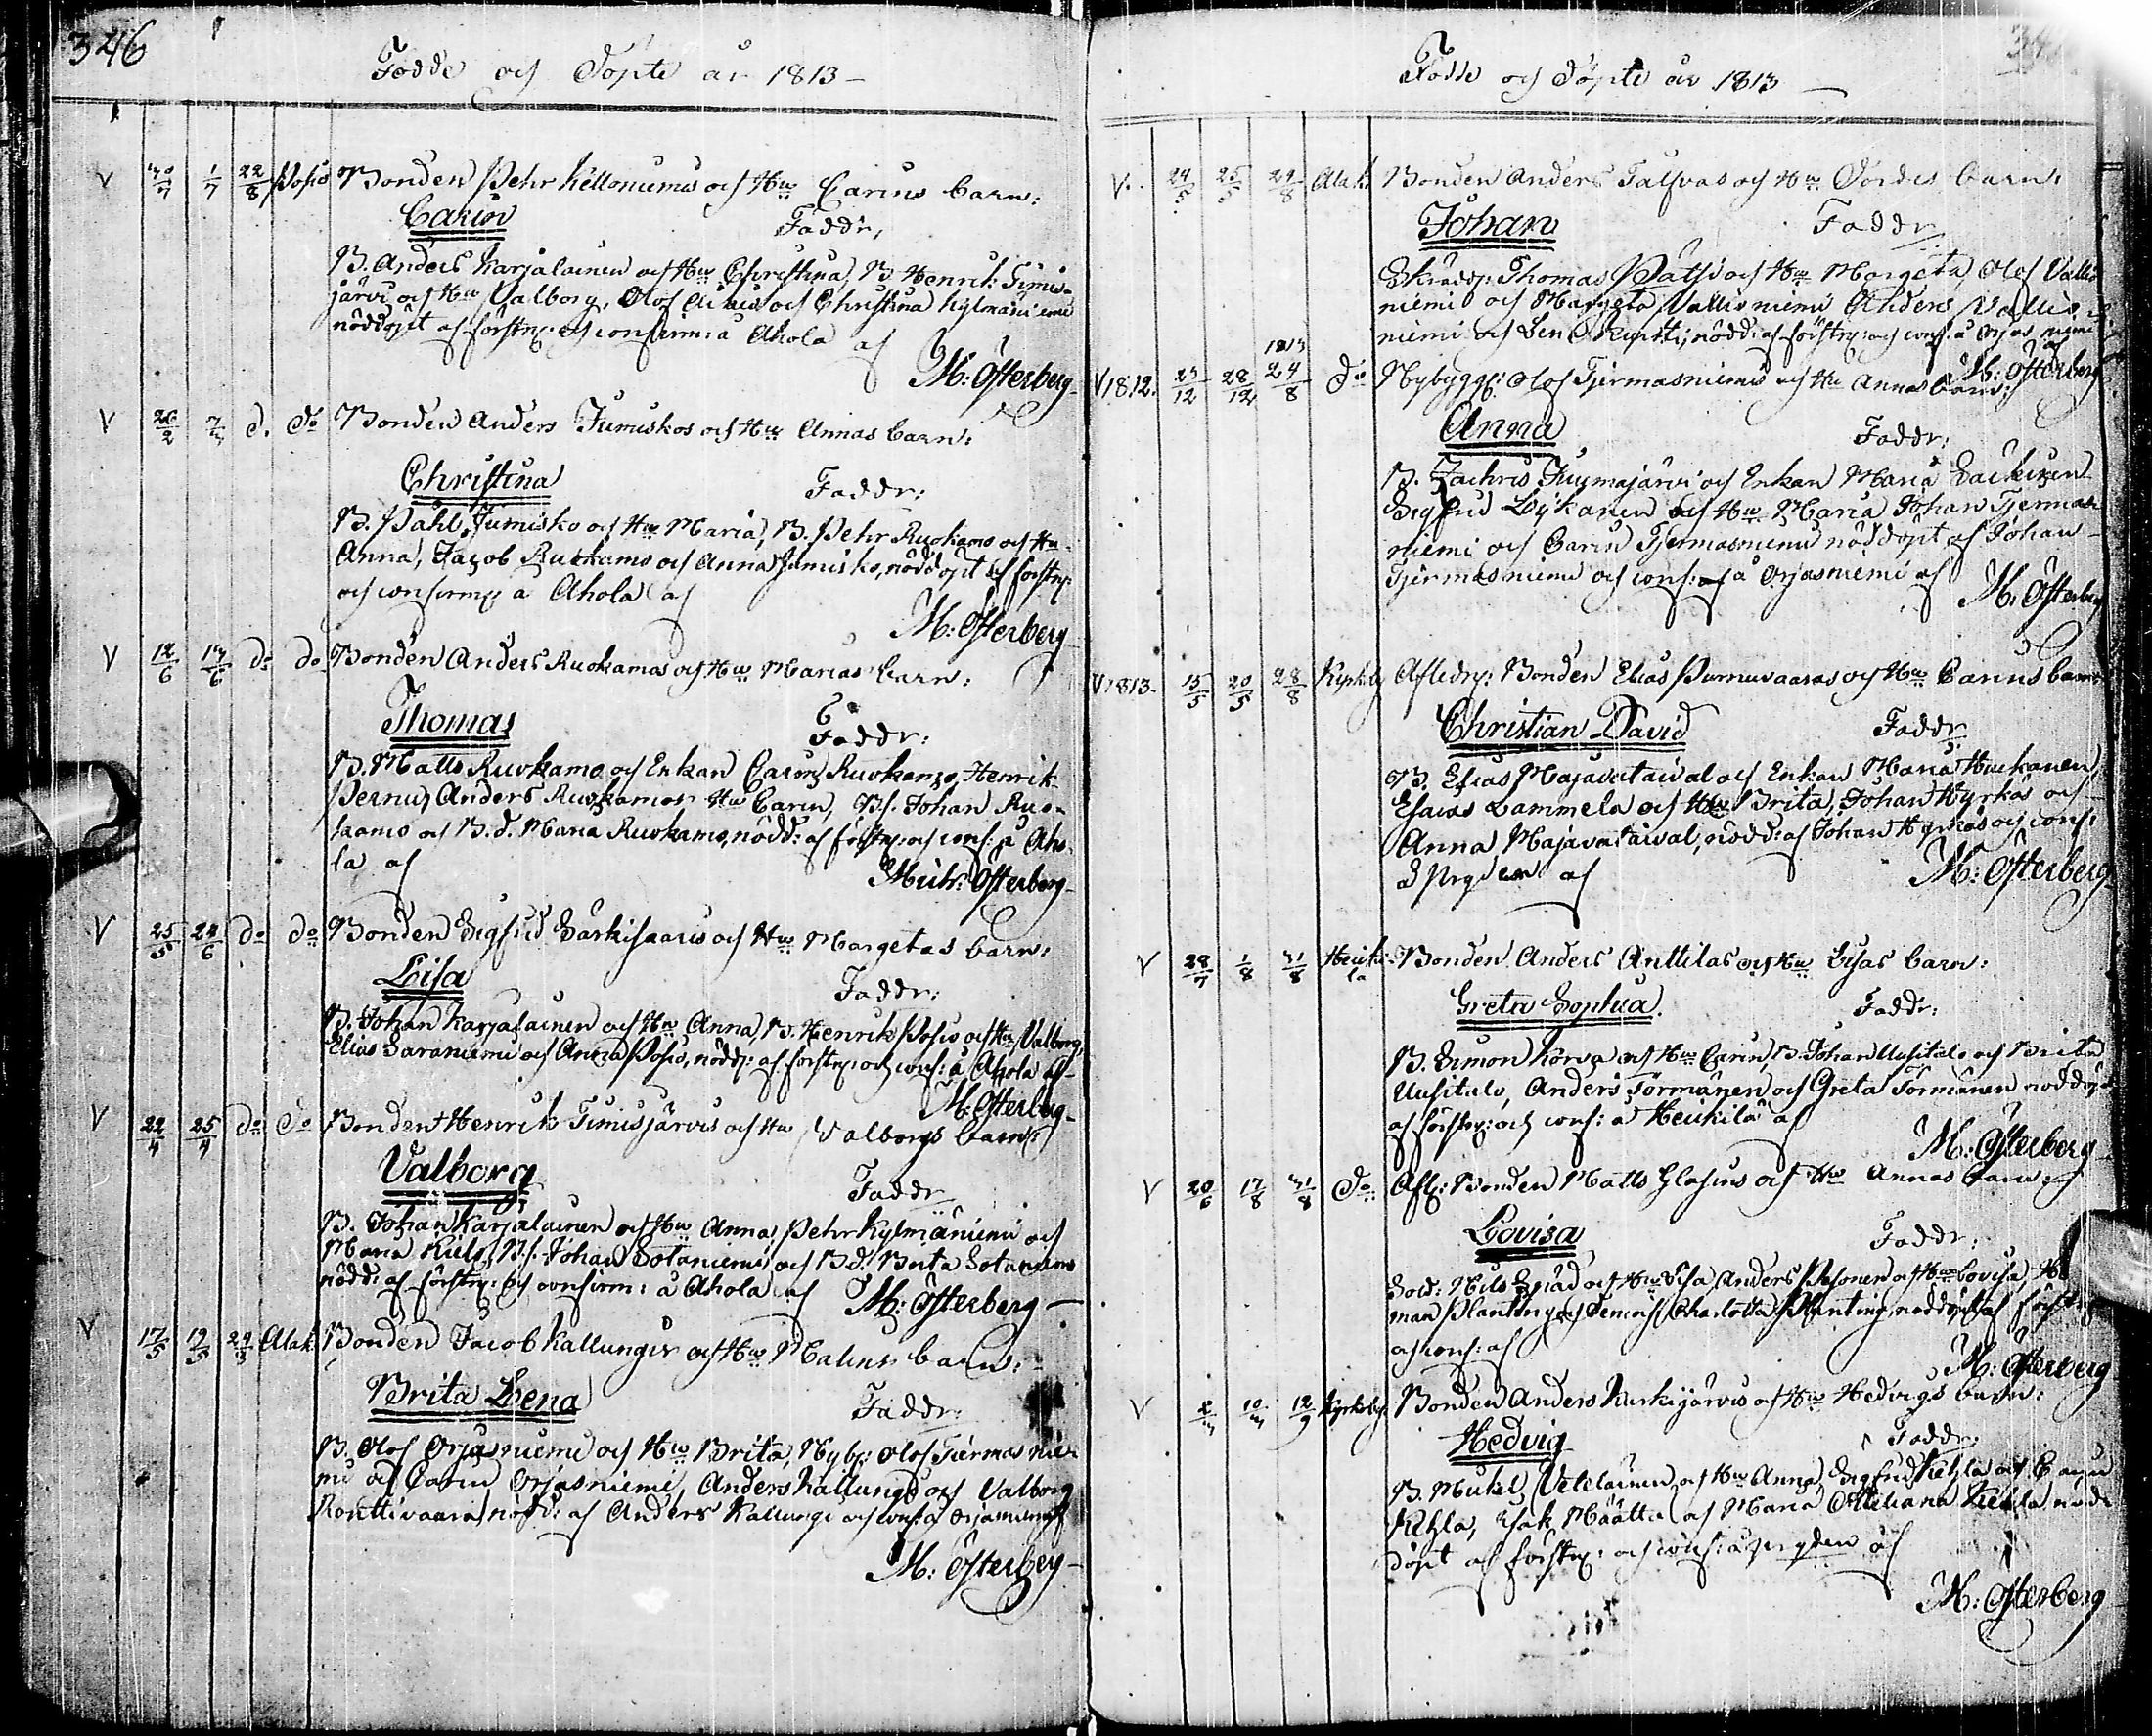 346
Födde och Döpte år 1813 –
V 30/7 1/7 22/8 Posio Bonden Pehr Kelloniemis och Hu Carins barn:
Carin Faddr,
B. Anders Karjalainen och Hu Christina, B. Henrik Timis-
järvi och Hu Valborg, Olof och Christina Kylmäniemi
nöddöpt af förstnj: och confirm: å Ahola af
M: Österberg
V 26/2 7/3 d. do Bonden Anders Jumiskos och Hu Annas barn:
Christina Faddr:
B. Påhl Jumisko och Hu Maria, B. Pehr Ruokamo och Hu
Anna, Jacob Ruokamo och Anna Jumisko, nöddöpt af förstnj:
och confirmj: å Ahola af
M: Österberg
V 12/6 13/6 do do Bonden Anders Ruokamos och Hu Marias barn:
Thomas Faddr:
B. Matts Ruokamo och Enkan Carin Ruokamo, Henrik
Pernu, Anders Ruokamos Hu Carin, Bs. Johan Ruo-
kamo och B.d. Maria Ruokamo, nödd: af förstnj: och conf: å Aho-
la af
Mich: Österberg
V 25/5 24/6 do do Bonden Sigfrid Särkisaaris och Hu Margetas barn:
Loisa Faddr:
B. Johan Karjalainen och Hu Anna, B. Henrik Posio och Hu Valborg,
Elias Saraniemi och Anna Posio, nödd: af förstnj: och conf: å Ahola af
M: Österberg
V 22/4 25/4 do do Bonden Henrik Timisjärvis och Hu Valborgs barn:
Valborg Faddr
B. Johan Karjalainen och Hu Anna, Pehr Kylmäniemi och
Maria Kielo, Bs. Johan Sotaniemi och Bd. Brita Sotaniemi
nödd: af förstnj: och confirm: å Ahola af M: Österberg –
V 17/5 19/5 Alak. Bonden Jacob Kallungis och Hu Malins barn:
Brita Lena Faddr:
B. Olof Orjasniemi och Hu Brita, Nybj: Olof Tiermasnie-
mi och Carin Orjasniemi, Anders Kallungi och Valborg
Konttivaara, nödd: af Anders Kallungi och conf: å Orjasniemi af
M: Österberg –
Födde och Döpte år 1813 –
V. 24/5 25/5 24/8 Alak. Bonden Anders Talsvas och Hu Dordis barn:
Johan Faddr
Thomas Pätsi och Hu Margeta, Olof Vallis
niemi och Margeta Vallisniemi Anders Vallis
niemi och nödd: af förstnj: och conf: å Orjasniemi
af M: Österberg
V 1812. 23/12 28/12 1813 24/8 do Nybyggj: Olof Tjermasniemis och Hu Annas barn:
Anna Faddr:
B. Zachris Kuymajärvi och Enkan Maria
Sigfrid Lyckanen och Hu Maria Johan Tjermas-
niemi och Carin Tjermasniemi nöddöpt af Johan
Tjermasniemi och conf: å Orjasniemi af
M: Österberg
V 1813. 15/5 20/5 28/8 Kyrkoby Aflednj: Bonden Elias Purnuvaaras och Hu Carins barn
Christian David Faddr
B. Esaias Majavataival och Enkan Maria
Esaias Lammela och Hu Brita, Johan Hyrkäs och
Anna Majavataival, nödd: af Johan Hyrkäs och conf:
af M: Österberg
V 28/7 1/8 31/8 Heikki-la Bonden Anders Anttilas och Hu Lisas barn:
Greta Sophia. Faddr:
B. Simon Korva och Hu Carin, B. Johan Uusitalo och Brita
Uusitalo, Anders Törmänen och Greta Törmänen nöddöpt
af förstnj: och conf: å Heikkilä af
M: Österberg
V 20/6 17/8 31/8 do Afl: Bonden Matts och Hu Annas barn
Lovisa Faddr:
Sold: Nils och Hu Lisa, Anders Pesonen och Hu Lovisa,
man Planting och Charlotta Planting, nöddöpt af förstnj:
och conf: af
M: Österberg
V 10/3 12/9 Kyrkoby Bonden Anders Kurkijärvis och Hu Hedvigs barn:
Hedvig Faddr:
B. Michel Vetelainen och Hu Anna, Sigfrid Kehla och Carin
Kehla, Isak Määttä och Maria Kehla nöd-
döpt af förstnj: och conf: af
M: Österberg